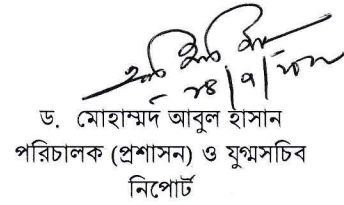 ড. মোহাম্মদ আবুল হাসান
পরিচালক (প্রশাসন) ও যুগ্মসচিব
নিপোর্ট